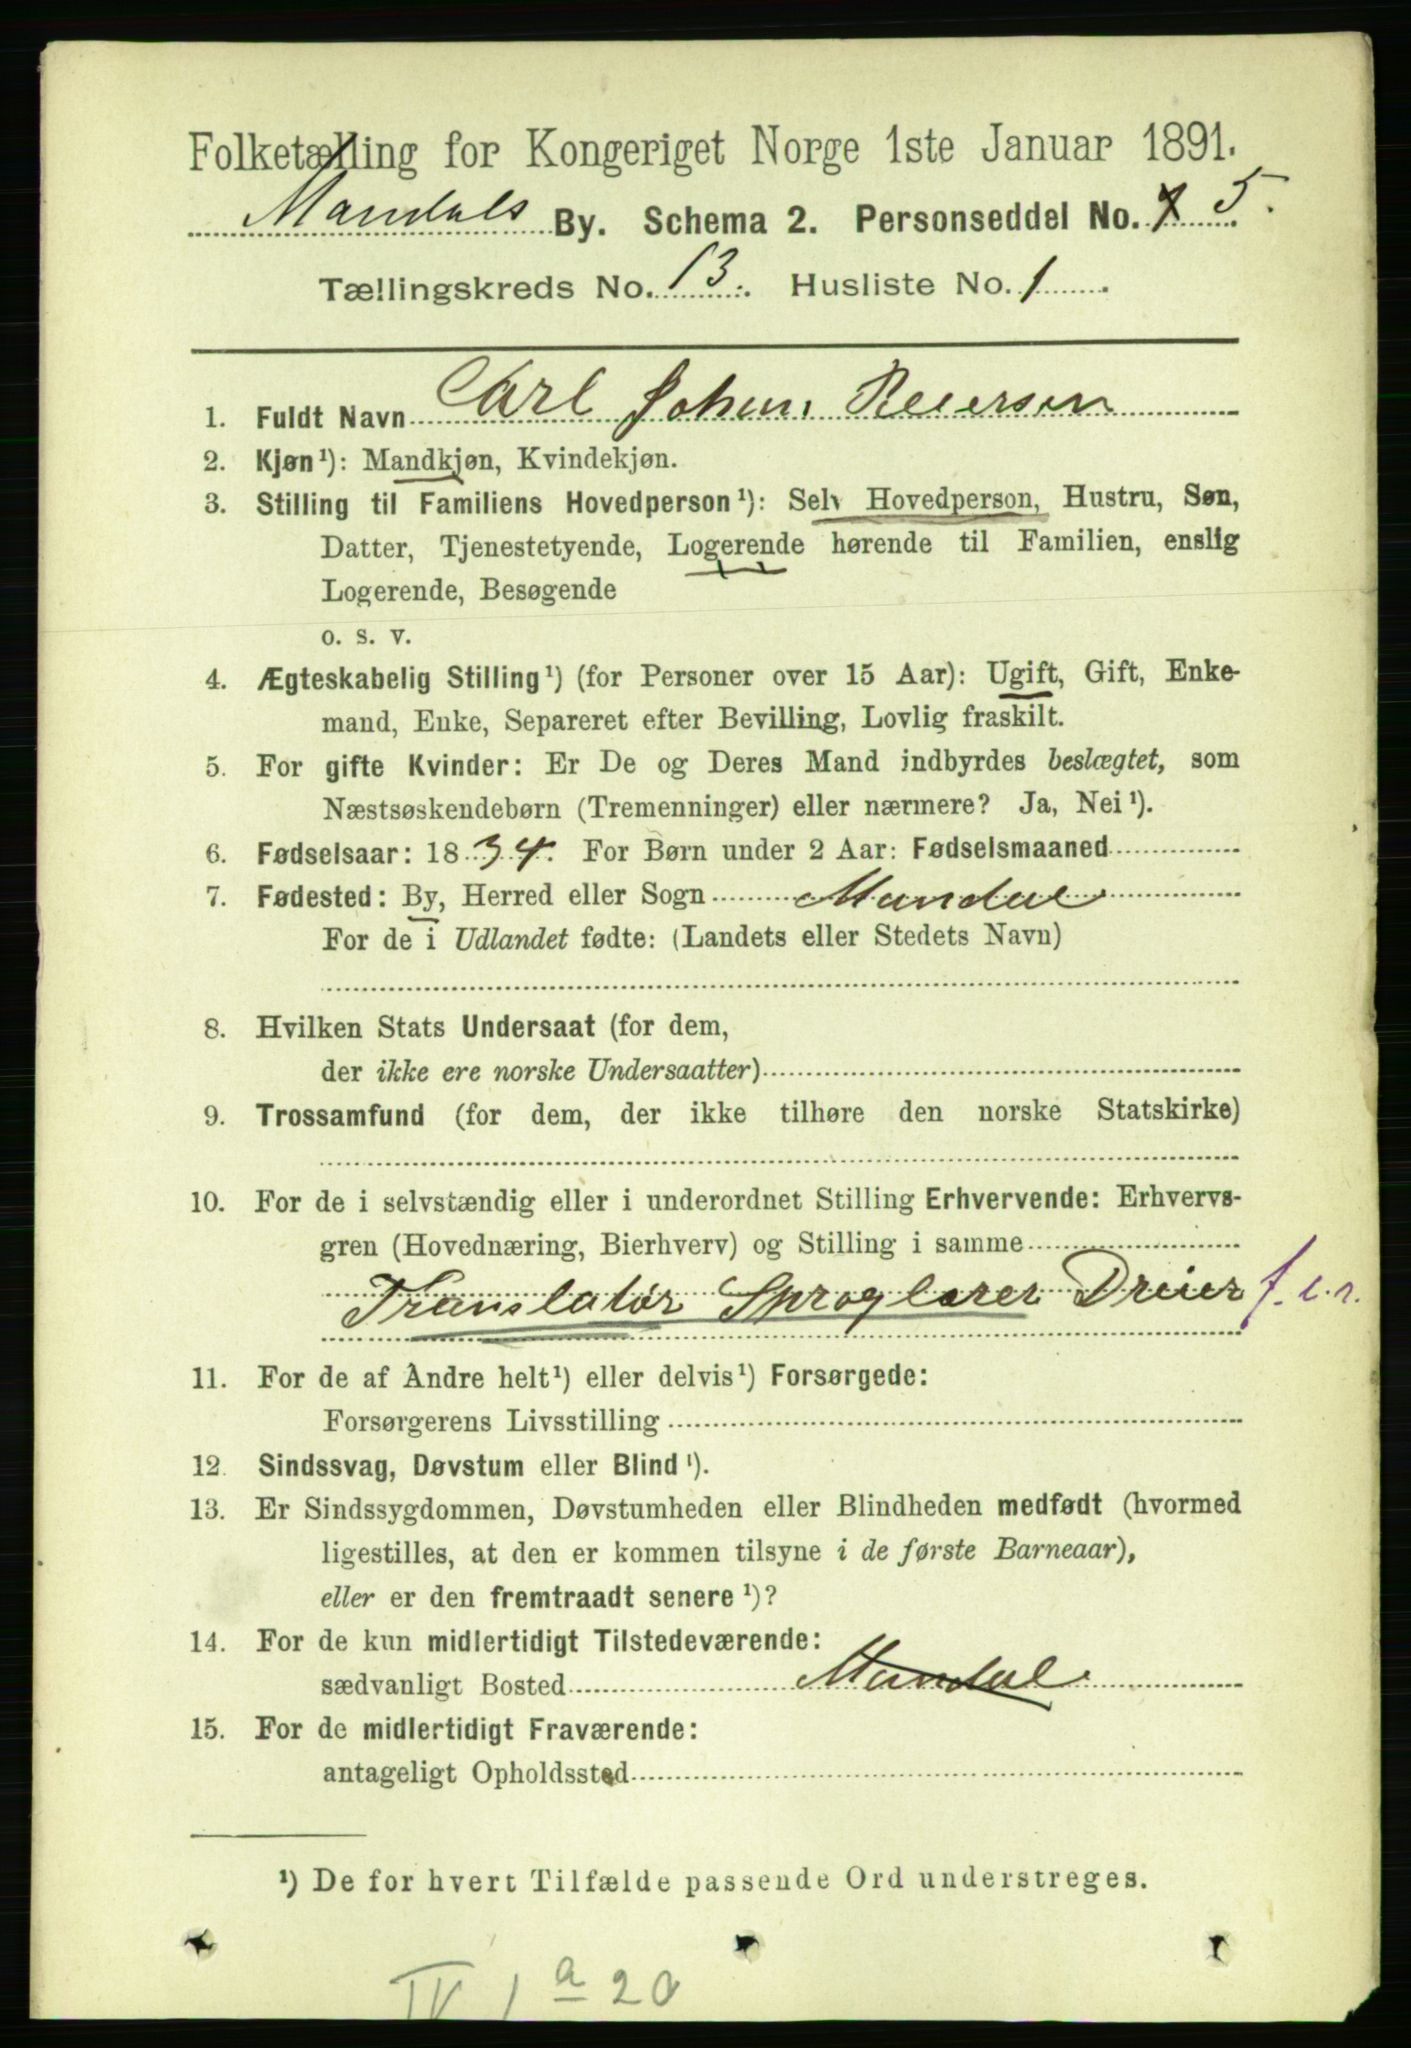 Folketælling for Kongeriget Norge 1ste Januar 1891.
Mandals By. Schema 2. Personseddel No. 1 5.
Tællingskreds No. 13. Husliste No. 1.
1. Fuldt Navn Carl Johan Reiersen
2. Kjøn¹): Mandkjøn, Kvindekjøn.
3. Stilling til Familiens Hovedperson¹): Selv Hovedperson, Hustru, Søn,
Datter, Tjenestetyende, Logerende hørende til Familien, enslig
Logerende, Besøgende
o. s. v.
4. Ægteskabelig Stilling¹) (for Personer over 15 Aar): Ugift, Gift, Enke-
mand, Enke, Separeret efter Bevilling, Lovlig fraskilt.
5. For gifte Kvinder: Er De og Deres Mand indbyrdes beslægtet, som
Næstsøskendebørn (Tremenninger) eller nærmere? Ja, Nei¹).
6. Fødselsaar: 1834. For Børn under 2 Aar: Fødselsmaaned
7. Fødested: By, Herred eller Sogn Mandal
For de i Udlandet fødte: (Landets eller Stedets Navn)
8. Hvilken Stats Undersaat (for dem,
der ikke ere norske Undersaatter)
9. Trossamfund (for dem, der ikke tilhøre den norske Statskirke)
10. For de i selvstændig eller i underordnet Stilling Erhvervende: Erhvervs-
gren (Hovednæring, Bierhverv) og Stilling i samme
Translatør Sproglærer Dreier f. e. r.
11. For de af Andre helt¹) eller delvis¹) Forsørgede:
Forsørgerens Livsstilling
12. Sindssvag, Døvstum eller Blind¹).
13. Er Sindssygdommen, Døvstumheden eller Blindheden medfødt (hvormed
ligestilles, at den er kommen tilsyne i de første Barneaar),
eller er den fremtraadt senere¹)?
14. For de kun midlertidigt Tilstedeværende:
sædvanligt Bosted Mandal
15. For de midlertidigt Fraværende:
antageligt Opholdssted
¹) De for hvert Tilfælde passende Ord understreges.
IV 1 a 20